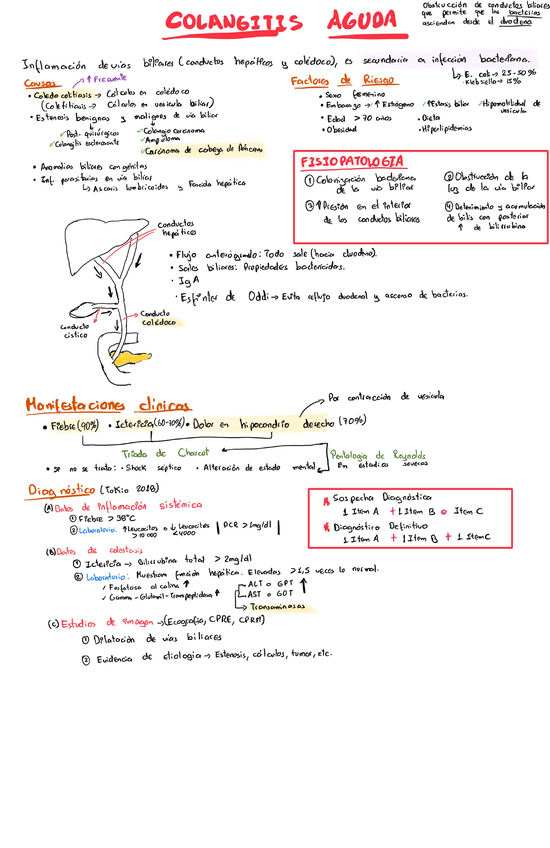 COLANGITIS AGUDA
Obstrucción de conductos biliares
que permite que las bacterias
asciendan desde el duodeno
Inflamación de vías biliares (conductos hepáticos y colédoco), es secundaria a infección bacteriana.
↳ E. coli → 25-50%
· Klebsiella → 15%
Causas
→ ↑ Frecuente
• Coledocolitiasis → Cálculo en colédoco
(Colelitiasis → Cálculos en vesícula biliar)
• Estenosis benignas y malignas de vía biliar
✓ Post-quirúrgicos
✓ Colangitis esclerosante
✓ Colangiocarcinoma
✓ Ampuloma
✓ Carcinoma de cabeza de Páncreas
• Anomalías biliares congénitas
• Inf. parasitarias en vía biliar
↳ Ascaris lumbricoides y Fasciola hepática
Factores de Riesgo
• Sexo femenino
• Embarazo → ↑ Estrógeno ✓ Estasis biliar ✓ Hipomotilidad de vesícula
• Edad > 70 años
• Dieta
• Obesidad
• Hiperlipidemias
FISIOPATOLOGIA
① Colonización bacteriana
de la vía biliar
② Obstrucción de la
luz de la vía biliar
③ ↑ Presión en el interior
de los conductos biliares
④ Detenimiento y acumulación
de bilis con posterior
↑ de bilirrubina
Conductos
hepáticos
Conducto
cístico
Conducto
colédoco
• Flujo anterógrado: Todo sale (hacia duodeno).
• Sales biliares: Propiedades bactericidas.
• IgA
• Esfínter de Oddi → Evita reflujo duodenal y ascenso de bacterias.
Manifestaciones clínicas
→ Por contracción de vesícula
• Fiebre (90%) • Ictericia (60-70%) • Dolor en hipocondrio derecho (70%)
Triada de Charcot
Pentalogía de Reynolds
• Si no se trata: • Shock séptico • Alteración de estado mental
En estadios severos
Diagnóstico (Tokio 2018)
(A) Datos de inflamación sistémica
① Fiebre > 38°C
② Laboratorio: ↑ Leucocitos > 10 000 o ↓ Leucocitos < 4000 | PCR > 1mg/dl |
(B) Datos de colestasis
① Ictericia → Bilirrubina total > 2mg/dl
② Laboratorio: Muestran función hepática. Elevadas > 1,5 veces lo normal.
✓ Fosfatasa alcalina ↑
✓ Gamma-Glutamil-Transpeptidasa ↑
ALT o GPT ↑
AST o GOT ↑
→ Transaminasas
(C) Estudios de imagen → (Ecografía, CPRE, CPRM)
① Dilatación de vías biliares
② Evidencia de etiología → Estenosis, cálculos, tumor, etc.
* Sospecha Diagnóstica
1 Item A + 1 Item B o Item C
* Diagnóstico Definitivo
1 Item A + 1 Item B + 1 Item C